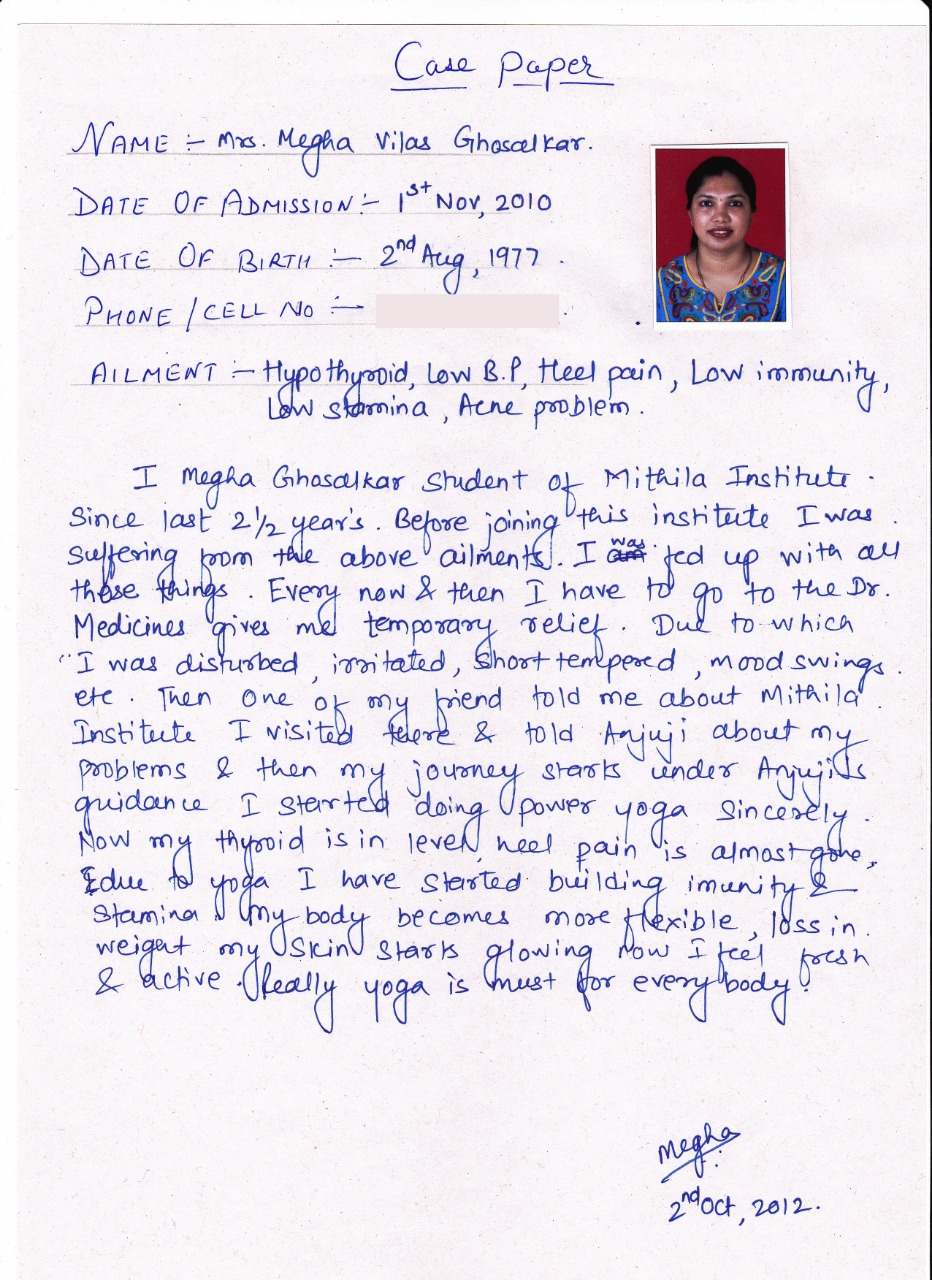 Case Paper
NAME :- Mrs. Megha Vilas Ghosalkar.
DATE OF ADMISSION:- 1st Nov, 2010
DATE OF BIRTH :- 2nd Aug, 1977 .
PHONE / CELL NO :-
AILMENT :- Hypothyroid, Low B.P, Heel pain, Low immunity,
Low stamina, Acne problem.
I Megha Ghosalkar student of Mithila Institute.
Since last 2½ year's. Before joining this institute I was
suffering from the above ailments. I was fed up with all
these things. Every now & then I have to go to the Dr.
Medicines gives me temporary relief. Due to which
I was disturbed, irritated, short tempered, mood swings.
etc. Then one of my friend told me about Mithila
Institute I visited there & told Anjuji about my
problems & then my journey starts under Anjuji's
guidance I started doing power yoga sincerely.
Now my thyroid is in level, heel pain is almost gone,
due to yoga I have started building imunity &
stamina my body becomes more flexible, loss in
weight my skin starts glowing now I feel fresh
& active. Really yoga is must for every body.
Megha
2nd Oct, 2012.